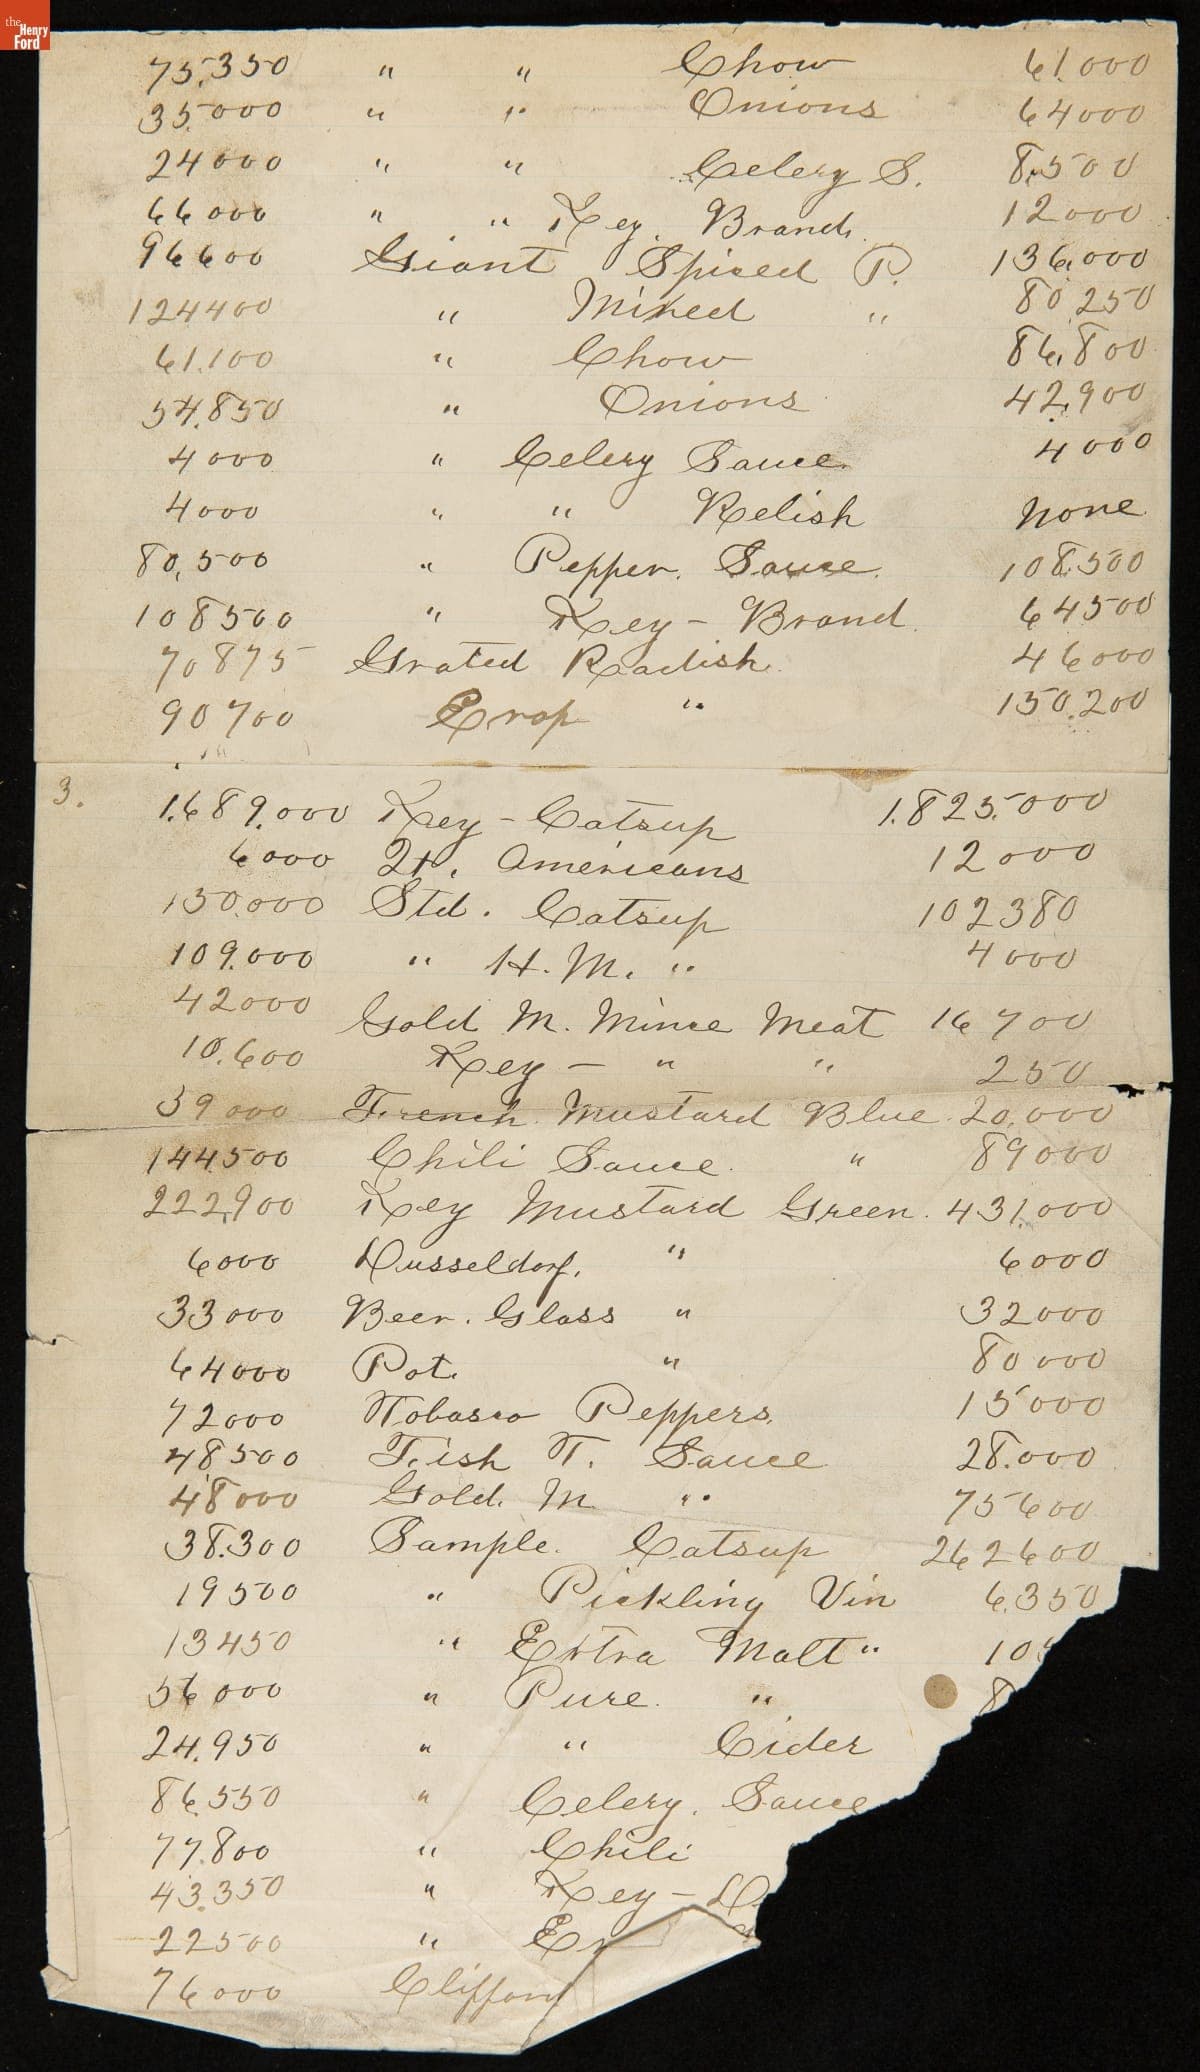 the Henry Ford
75,350 " " Chow 61.000
35.000 " " Onions 64000
24000 " " Celery S. 8,500
66000 " " Key Brand. 12000
96600 Giant Spiced P. 136,000
124400 " Mixed " 80,250
61.100 " Chow 86,800
54,850 " Onions 42,900
4000 " Celery Sauce 4000
4000 " " Relish None
80,500 " Pepper. Sauce. 108.500
108500 " Key - Brand 64500
70875 Grated Radish. 46000
90700 Evap " 150.200
3.
1.689.000 Key - Catsup 1.825.000
6000 Qt. Americans 12000
150.000 Std. Catsup 102380
109.000 " H. M. " 4000
42000 Gold M. Mince Meat 16700
10.600 Key - " " 250
39000 French Mustard Blue 20,000
144500 Chili Sauce. " 89000
222,900 Key Mustard Green. 431.000
6000 Dusseldorf. " 6000
33000 Beer. Glass " 32000
64000 Pot. " 80000
72000 Tobasco Peppers. 15000
48500 Fish T. Sauce 28.000
48000 Gold. M " 75600
38.300 Sample. Catsup 262600
19500 " Pickling Vin 6.350
13450 " Extra Malt " 10
56000 " Pure. " 8
24.950 " " Cider
86,550 " Celery. Sauce
77.800 " Chili
43.350 " Key -
22500 "
76000